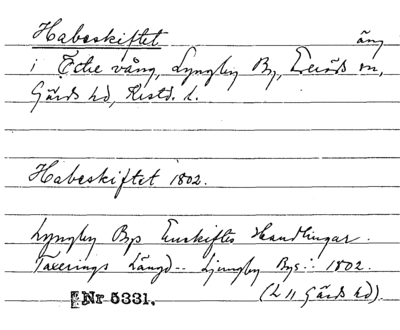 Habeskiftet äng
i Östre vång, Lyngby By, Everöds sn,
Gärds hd, Kristd. l.
Habeskiftet 1802.
Lyngby Bys Enskiftes Handlingar.
Taxerings Längd -- Ljungby Bys -:- 1802.
Nr 5331. (L 11 Gärds hd)